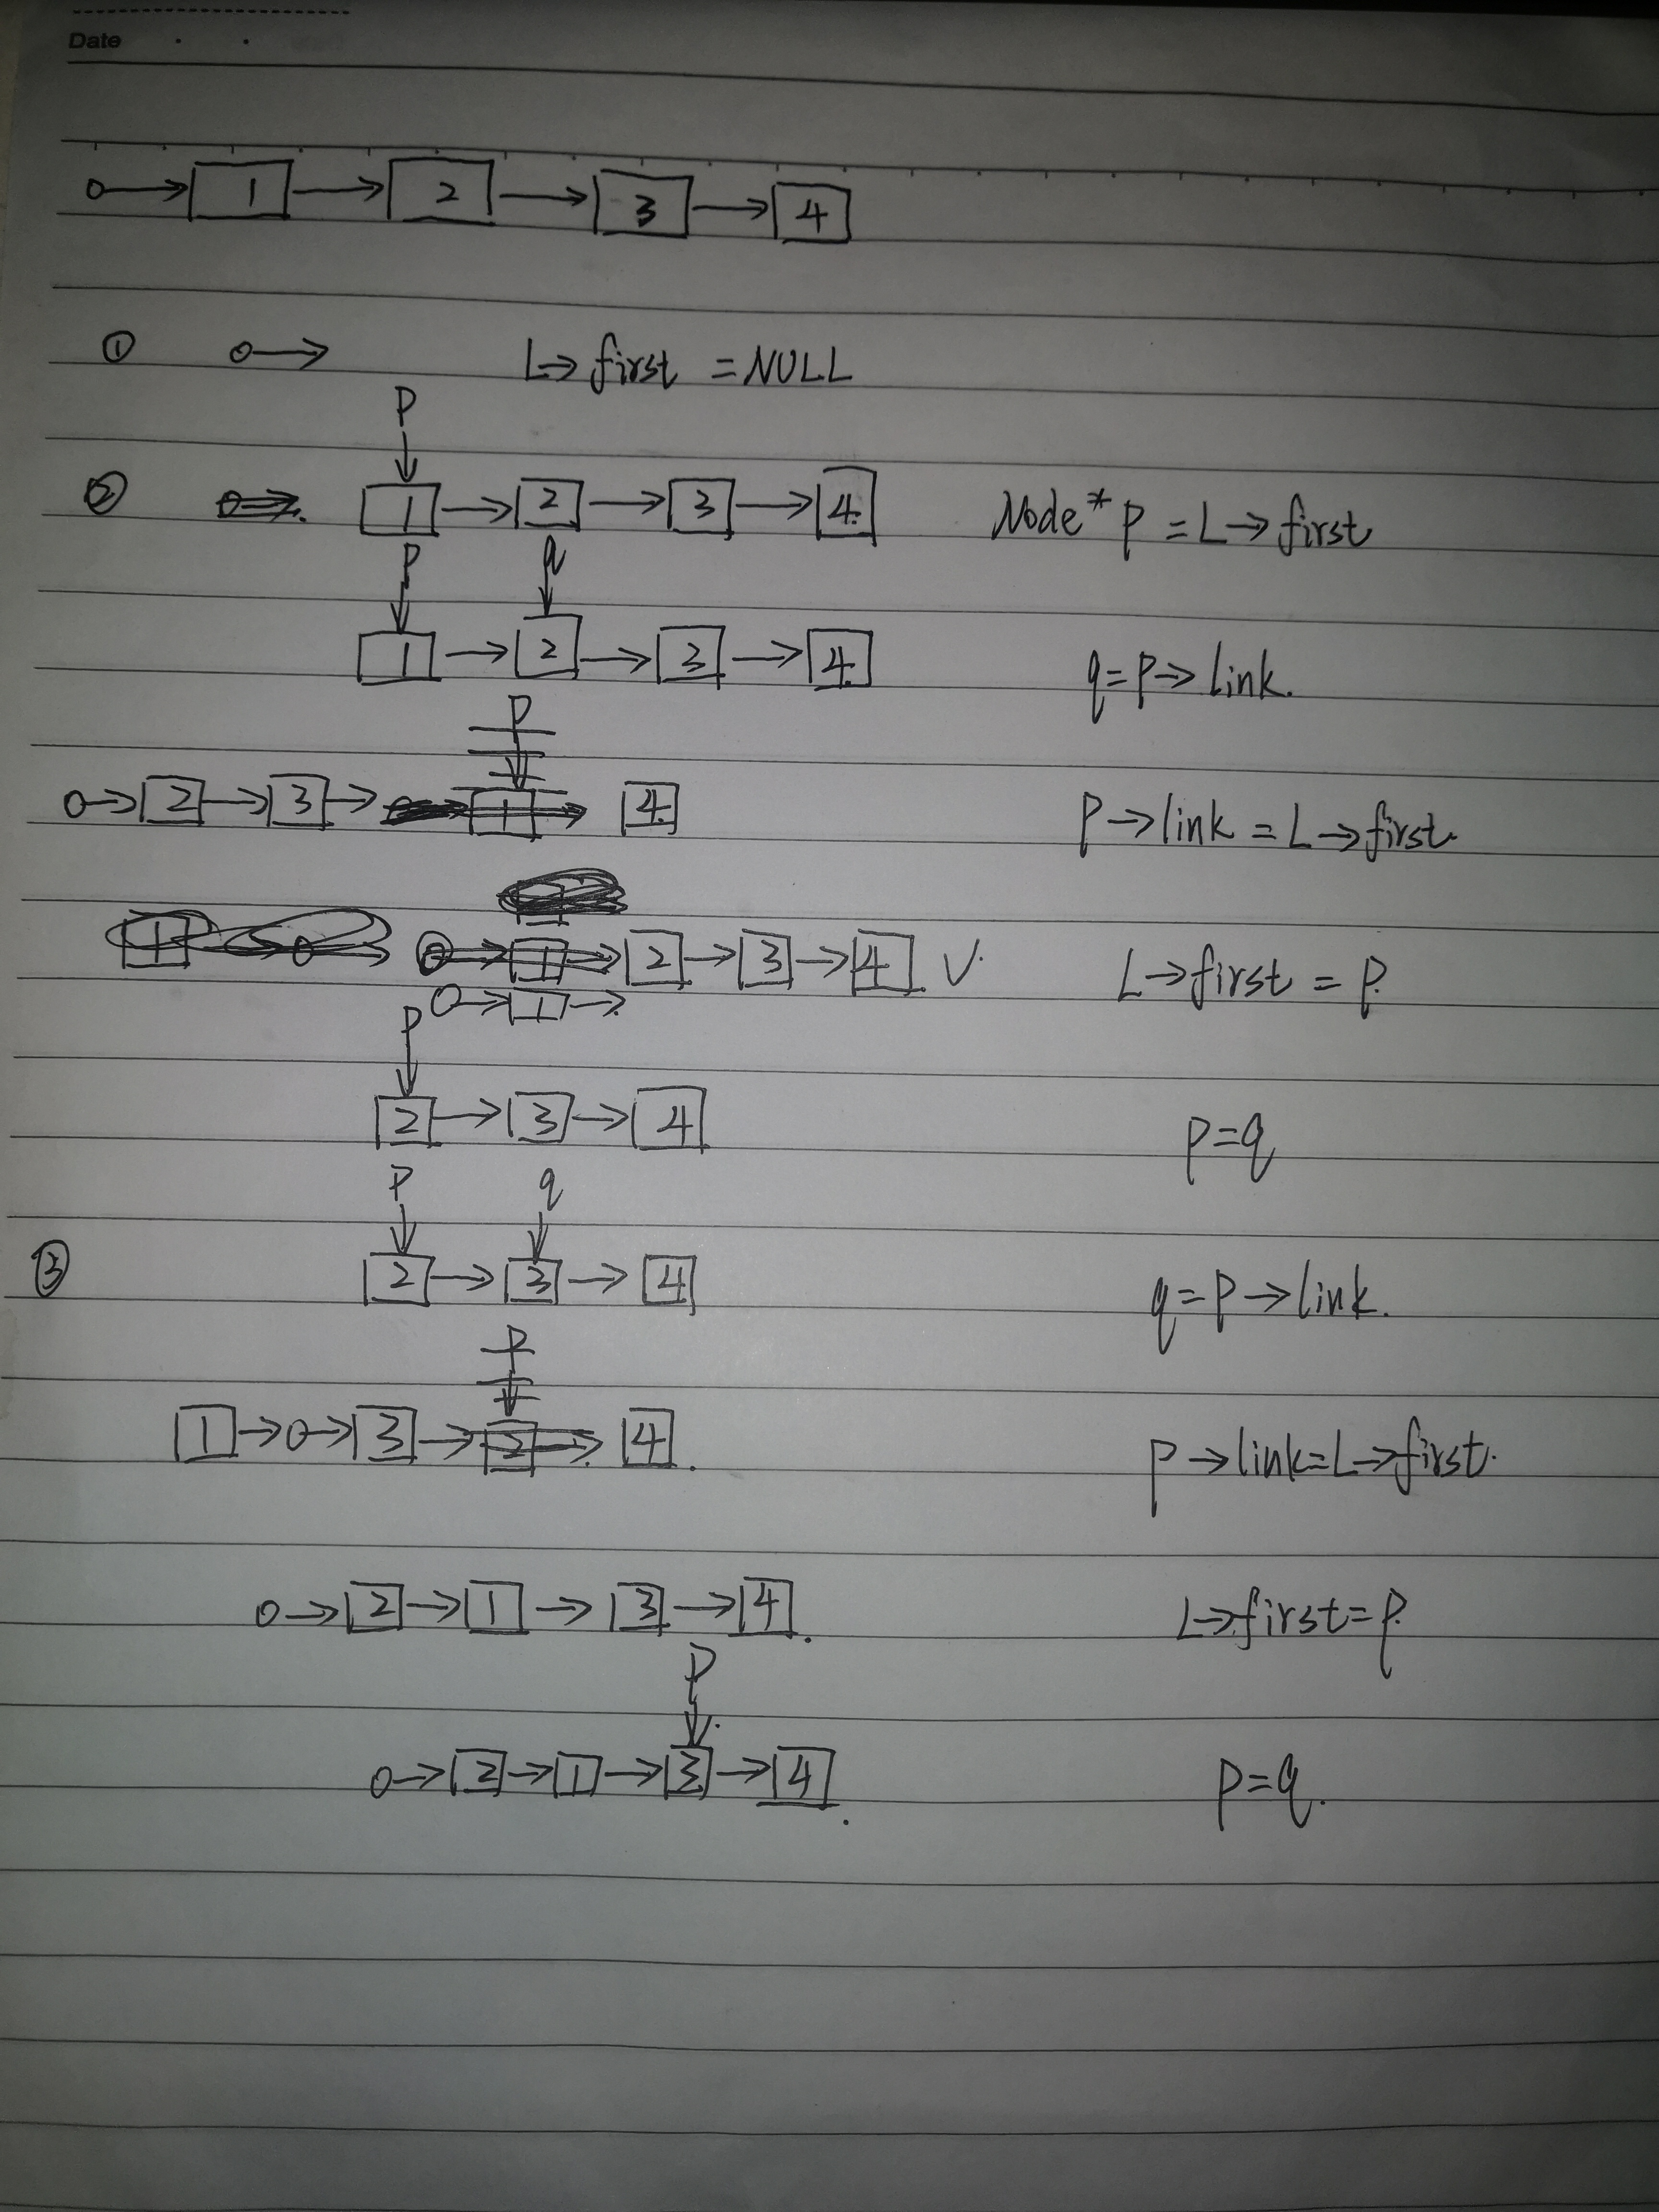 Date
1 2 3 4
① L→first = NULL
P
② 1 → 2 → 3 → 4 Node* P = L→first
P q
1 → 2 → 3 → 4 q=P→link.
P
→ 2 → 3 → 1 4 P→link = L→first.
1 → 2 → 3 → 4 √. L→first = P.
1 →
P
2 → 3 → 4 P=q
P q
③ 2 → 3 → 4 q=P→link.
P
1 → 0 → 3 → 2 → 4. P→link=L→first.
0 → 2 → 1 → 3 → 4. L→first=P.
P
0 → 2 → 1 → 3 → 4. P=q.